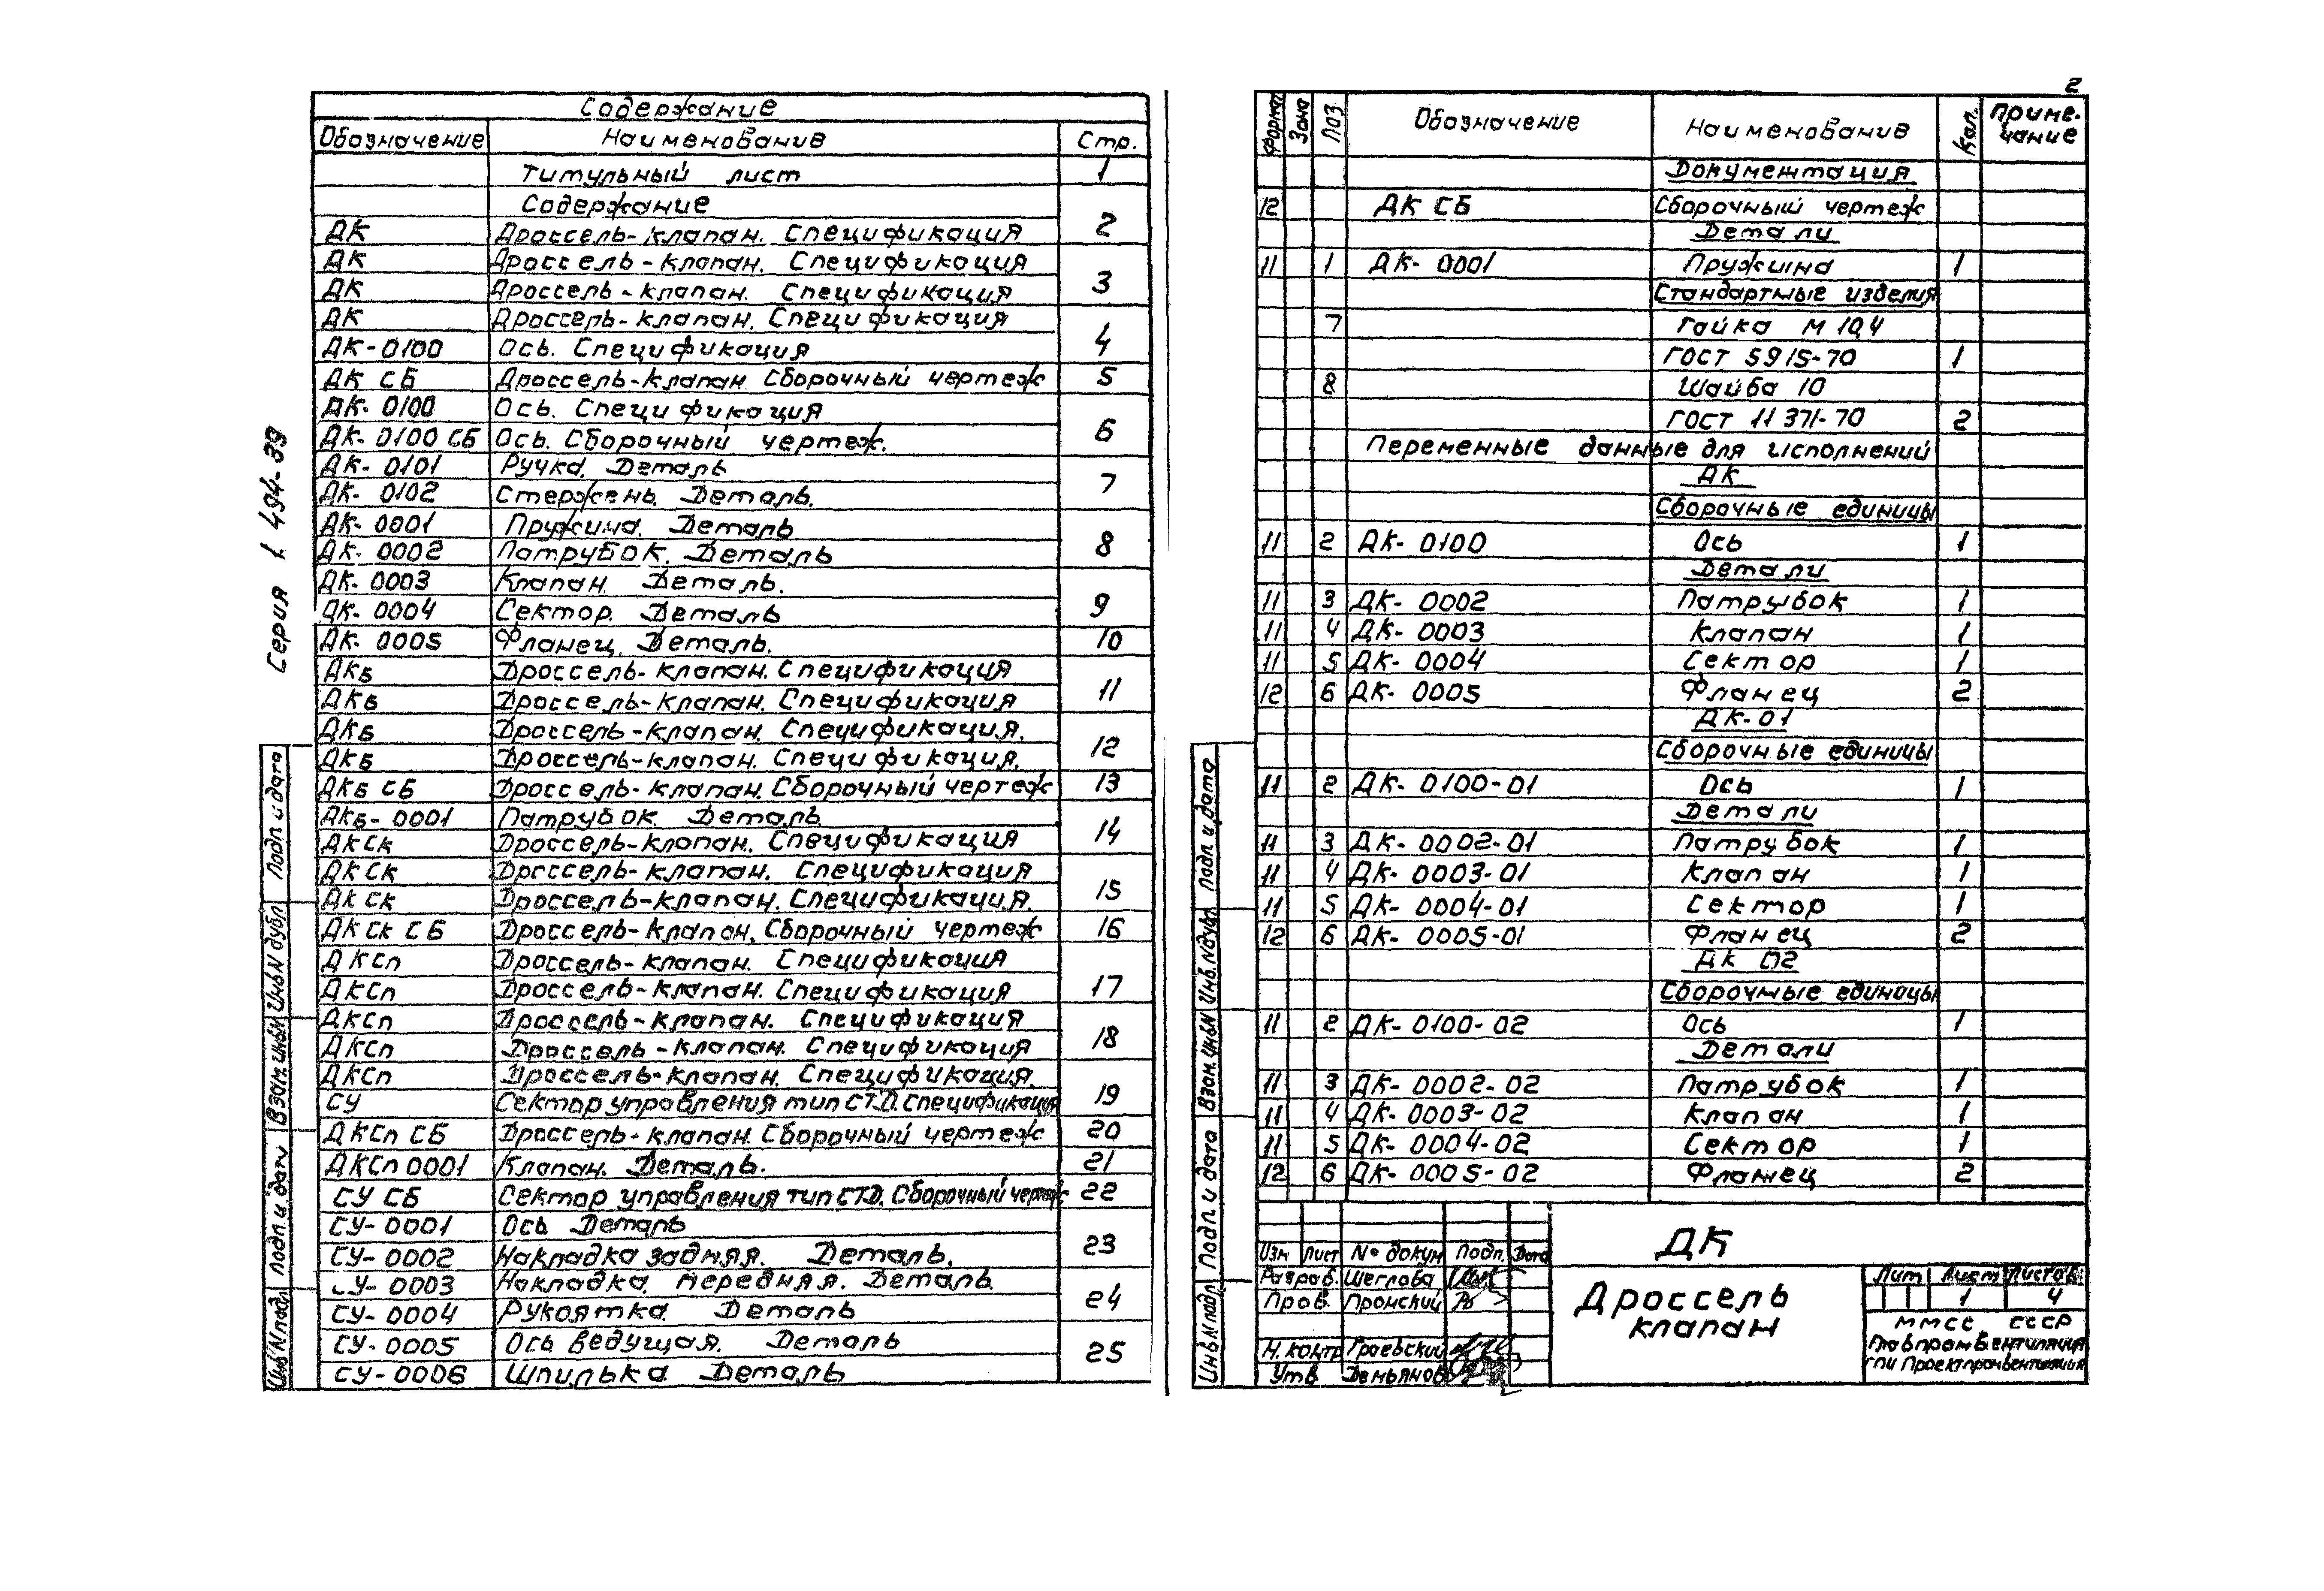 Содержание
Обозначение Наименование Стр.
Титульный лист 1
Содержание 2
ДК Дроссель-клапан. Спецификация
ДК Дроссель-клапан. Спецификация 3
ДК Дроссель-клапан. Спецификация
ДК Дроссель-клапан. Спецификация 4
ДК-0100 Ось. Спецификация
ДК СБ Дроссель-клапан. Сборочный чертеж 5
ДК-0100 Ось. Спецификация 6
ДК-0100 СБ Ось. Сборочный чертеж.
ДК-0101 Ручка. Деталь 7
ДК-0102 Стержень. Деталь.
ДК-0001 Пружина. Деталь 8
ДК-0002 Патрубок. Деталь
ДК-0003 Клапан. Деталь. 9
ДК-0004 Сектор. Деталь
ДК-0005 Фланец. Деталь. 10
ДКБ Дроссель-клапан. Спецификация 11
ДКБ Дроссель-клапан. Спецификация
ДКБ Дроссель-клапан. Спецификация. 12
ДКБ Дроссель-клапан. Спецификация.
ДКБ СБ Дроссель-клапан. Сборочный чертеж 13
ДКБ-0001 Патрубок. Деталь 14
ДКСк Дроссель-клапан. Спецификация
ДКСк Дроссель-клапан. Спецификация 15
ДКСк Дроссель-клапан. Спецификация.
ДКСк СБ Дроссель-клапан. Сборочный чертеж 16
ДКСп Дроссель-клапан. Спецификация 17
ДКСп Дроссель-клапан. Спецификация
ДКСп Дроссель-клапан. Спецификация 18
ДКСп Дроссель-клапан. Спецификация
ДКСп Дроссель-клапан. Спецификация. 19
СУ Сектор управления тип СТД. Спецификация
ДКСп СБ Дроссель-клапан. Сборочный чертеж 20
ДКСп 0001 Клапан. Деталь. 21
СУ СБ Сектор управления тип СТД. Сборочный чертеж 22
СУ-0001 Ось Деталь 23
СУ-0002 Накладка задняя. Деталь.
СУ-0003 Накладка передняя. Деталь 24
СУ-0004 Рукоятка Деталь
СУ-0005 Ось ведущая. Деталь 25
СУ-0006 Шпилька Деталь
Серия 1.494-39
Подп. и дата
Инв N дубл
Взам. инв N
Подп. и дата
Инв N подл
2
Формат Зона Поз. Обозначение Наименование Кол. Приме-
чание
Документация
12 ДК СБ Сборочный чертеж
Детали
11 1 ДК-0001 Пружина 1
Стандартные изделия
7 Гайка М 10,4
ГОСТ 5915-70 1
8 Шайба 10
ГОСТ 11371-70 2
Переменные данные для исполнений
ДК
Сборочные единицы
11 2 ДК-0100 Ось 1
Детали
11 3 ДК-0002 Патрубок 1
11 4 ДК-0003 Клапан 1
11 5 ДК-0004 Сектор 1
12 6 ДК-0005 Фланец 2
ДК-01
Сборочные единицы
11 2 ДК-0100-01 Ось 1
Детали
11 3 ДК-0002-01 Патрубок 1
11 4 ДК-0003-01 Клапан 1
11 5 ДК-0004-01 Сектор 1
12 6 ДК-0005-01 Фланец 2
ДК 02
Сборочные единицы
11 2 ДК-0100-02 Ось 1
Детали
11 3 ДК-0002-02 Патрубок 1
11 4 ДК-0003-02 Клапан 1
11 5 ДК-0004-02 Сектор 1
12 6 ДК-0005-02 Фланец 2
Подп. и дата
Инв. N дубл
Взам. инв N
Подп. и дата
Инв N подл
Изм Лист № докум Подп. Дата
Разраб. Щеглова
Пров. Пронский
Н. контр Граевский
Утв Демьянов
ДК
Дроссель
клапан
Лит Лист Листов
1 4
ММСС СССР
Главпромвентиляция
ГПИ Проектпромвентиляция